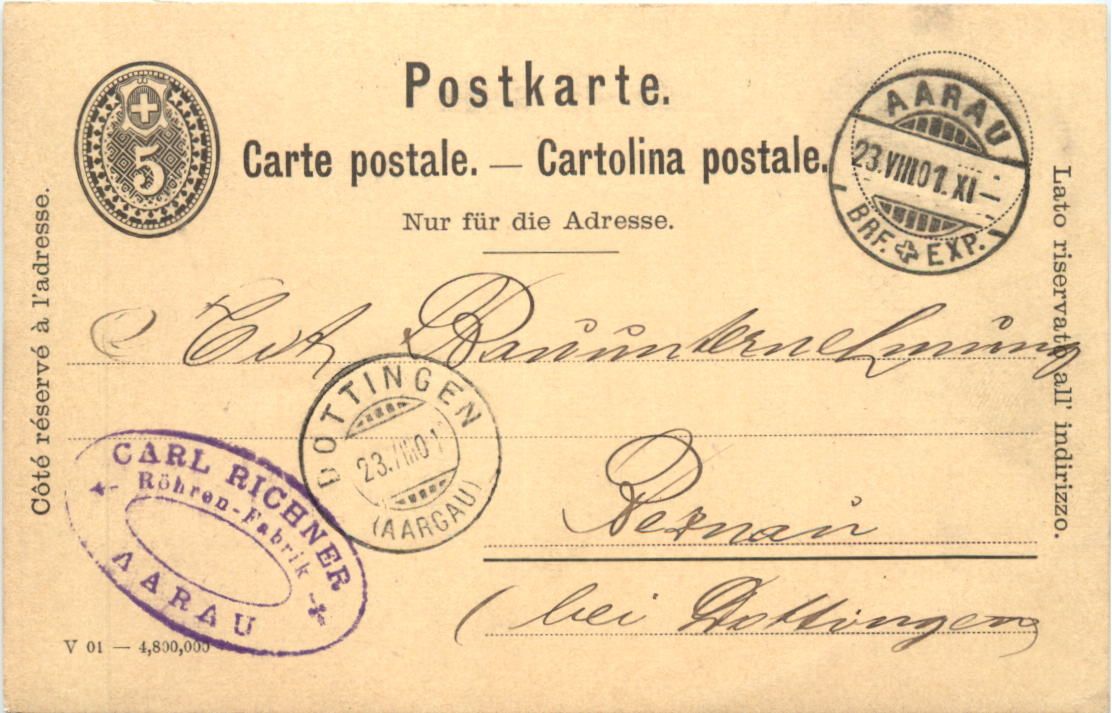 5
Postkarte.
Carte postale. — Cartolina postale.
Nur für die Adresse.
Côté réservé à l'adresse.
Lato riservato all' indirizzo.
AARAU
23.VIII.01. XI —
BRF. EXP.
Bauunternehmung
DOTTINGEN
23.VIII.01
(AARGAU)
Beznau
(bei Dottingen)
CARL RICHNER
Röhren-Fabrik
AARAU
V 01 — 4,800,000